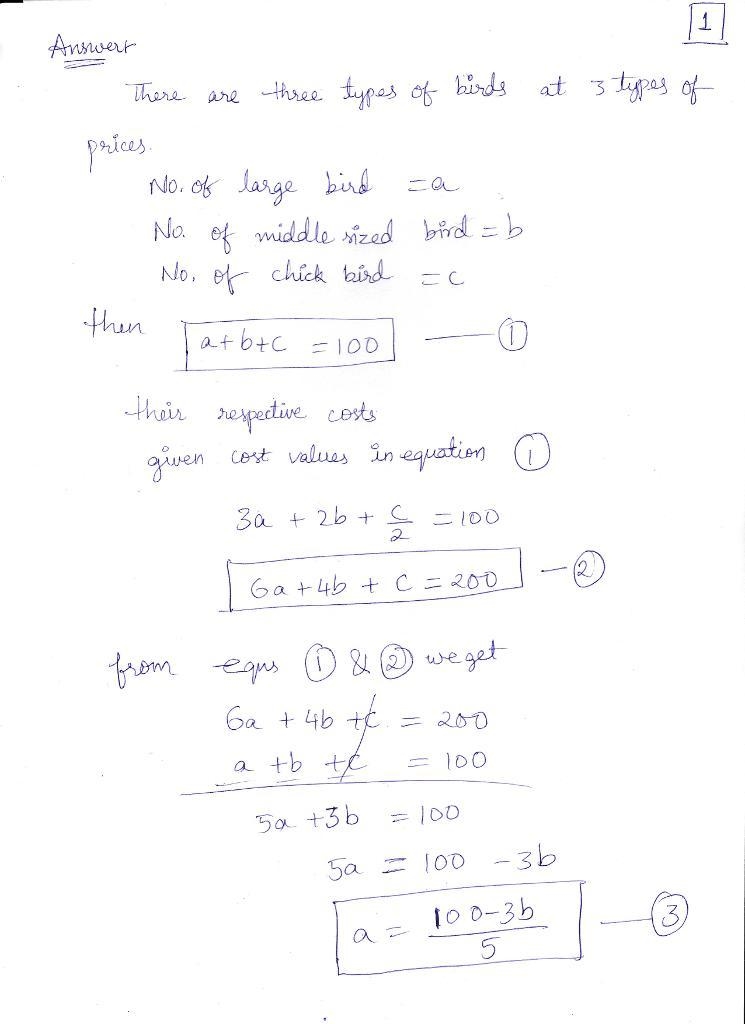 1
Answer
There are three types of birds at 3 types of
prices.
No. of large bird = a
No. of middle sized bird = b
No. of chick bird = c
then a+b+c = 100 — ①
their respective costs
given cost values in equation ①
3a + 2b + c/2 = 100
6a + 4b + c = 200 — ②
from equs ① & ② we get
6a + 4b + c = 200
a + b + c = 100
5a + 3b = 100
5a = 100 - 3b
a = 100-3b/5 — ③